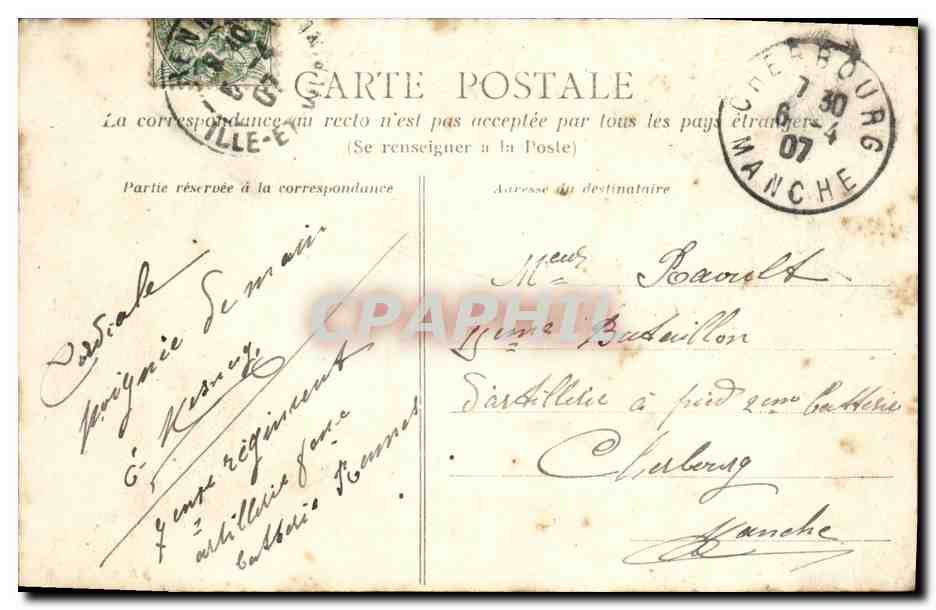 CARTE POSTALE
La correspondance au recto n'est pas acceptée par tous les pays étrangers
(Se renseigner a la Poste)
Partie réservée à la correspondance
Adresse du destinataire
CHERBOURG
7 30
6 - 4
07
MANCHE
RENN
10
ILLE-E
Cordiale
poignée de main
E
7eme régiment
artillerie
batterie Rennes
Raoult
Bataillon
d'artillerie à pied 2eme batterie
Cherbourg
Manche
CPAPHIL